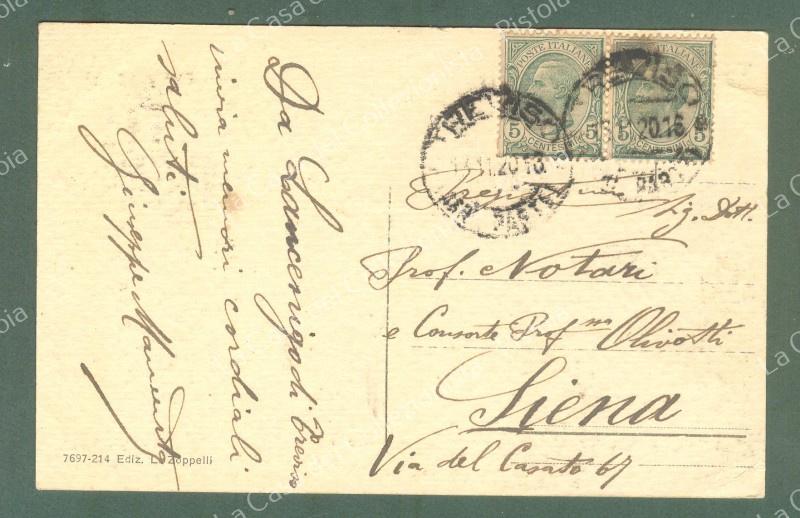 Da Lancenigo di Treviso
invia memori cordiali
saluti
Giuseppe
7697-214 Ediz. L. Zoppelli
POSTE ITALIANE
5 CENTESIMI 5
POSTE ITALIANE
5 CENTESIMI 5
TREVISO
20.16
TREVISO
20.16
Sig. Dott.
Prof. Notari
e Consorte Prof.ssa Olivotti
Siena
Via del Casato 67
La Casa del Collezionista Pistoia